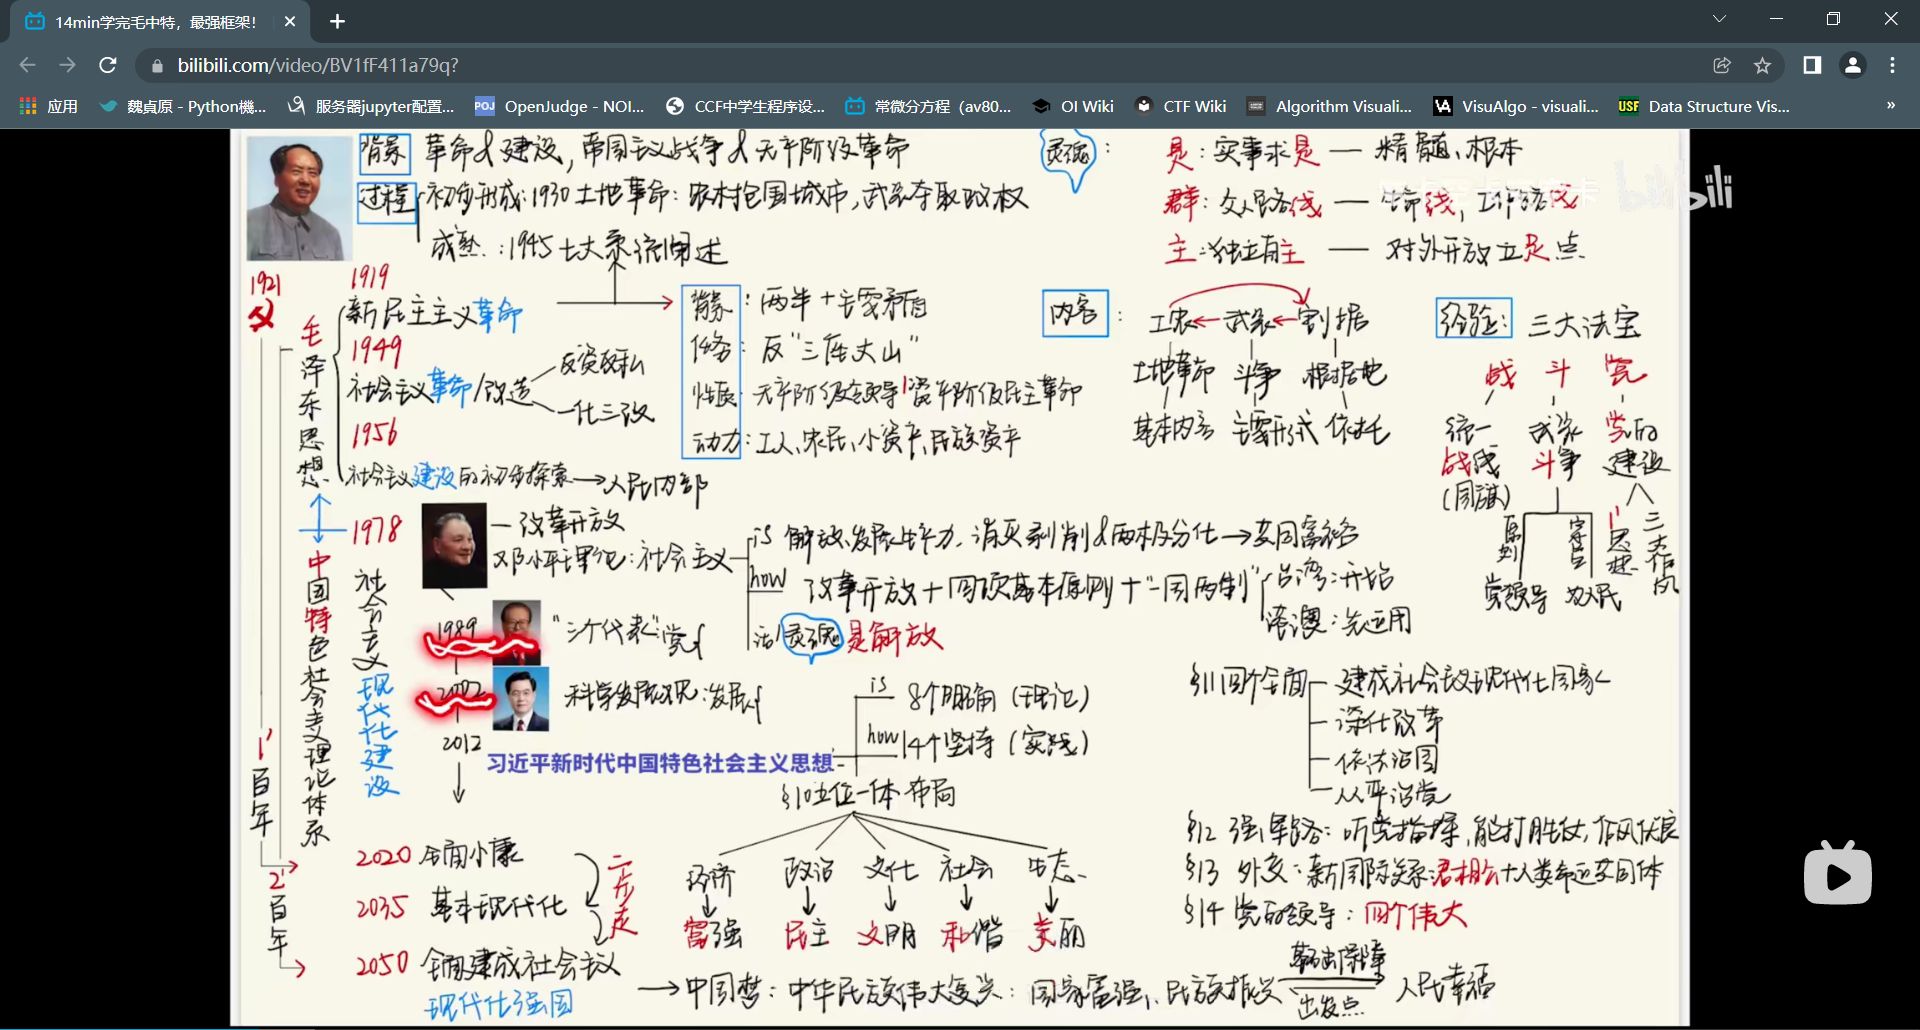 14min学完毛中特，最强框架！
bilibili.com/video/BV1fF411a79q?
应用
魏貞原 - Python機...
服务器jupyter配置...
POJ
OpenJudge - NOI...
CCF中学生程序设...
常微分方程（av80...
OI Wiki
CTF Wiki
Algorithm Visuali...
VA
VisuAlgo - visuali...
USF
Data Structure Vis...
»
bilibili
背景 革命&建设，帝国主义战争&无产阶级革命
过程 初步形成：1930土地革命：农村包围城市，武装夺取政权
成熟：1945七大系统阐述
灵魂：
是：实事求是 — 精髓、根本
群：众人民路线 — 生命线，工作路线
主：独立自主 — 对外开放立足点
1921
毛泽东思想
1919
新民主主义革命
1949
社会主义革命/改造
反资反私
一化三改
1956
社会主义建设的初步探索→人民内部
背景：两半+主要矛盾
任务：反"三座大山"
性质：无产阶级领导 资产阶级民主革命
动力：工人、农民、小资产、民族资产
内容：
工农←武装←割据
土地革命 斗争 根据地
基本内容 主要形式 依托
经验：三大法宝
战 斗 党
统一战线
(同旗)
武装斗争
党的建设
原则
党领导
宗旨
为人民
1思想
三大作风
1978
改革开放
邓小平理论：社会主义
is 解放、发展生产力，消灭剥削&两极分化→共同富裕
how 改革开放+四项基本原则+"一国两制"
台湾：开始
港澳：先运用
活灵魂 是解放
中国特色社会主义理论体系
社会主义现代化建设
1989
"三个代表"党
2002
科学发展观：发展
2012
习近平新时代中国特色社会主义思想
is 8个明确（理论）
how 14个坚持（实践）
§10五位一体布局
经济 政治 文化 社会 生态
富强 民主 文明 和谐 美丽
§11四个全面
建成社会主义现代化国家
深化改革
依法治国
从严治党
§12 强军路：听党指挥，能打胜仗，作风优良
§13 外交：新国际关系 君相会+人类命运共同体
§14 党的领导：四个伟大
1百年
2百年
2020 全面小康
2035 基本现代化
2050 全面建成社会主义
现代化强国
二步走
→中国梦：中华民族伟大复兴：国家富强、民族振兴
出发点
人民幸福